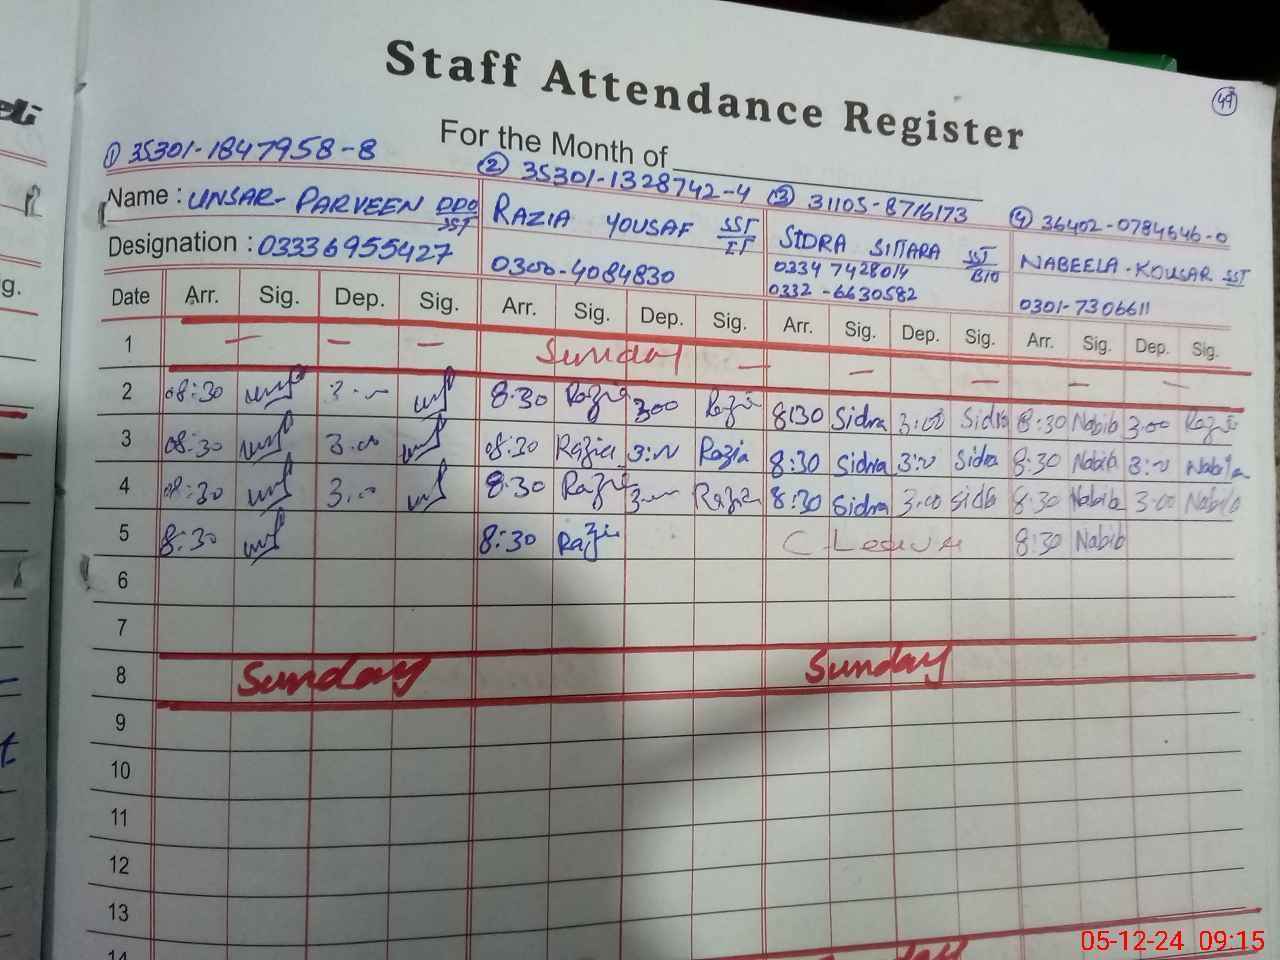 49
Staff Attendance Register
For the Month of
① 35301-1847958-8 ② 35301-1328742-4 ③ 31105-8716173 ④ 36402-0784646-0
Name : UNSAR-PARVEEN DDO SST RAZIA YOUSAF SST IT SIDRA SITTARA SST BIO NABEELA-KOUSAR SST
Designation : 03336955427 0300-4084830 0334 7428014 0301-7306611
0332-6630582
Date Arr. Sig. Dep. Sig. Arr. Sig. Dep. Sig. Arr. Sig. Dep. Sig. Arr. Sig. Dep. Sig.
1 — — — Sunday — — — — —
2 08:30 3.00 8:30 Razia 300 Razia 8:30 Sidra 3:00 Sidra 8:30 Nabib 3:00
3 08:30 3.00 08:30 Razia 3:00 Razia 8:30 Sidra 3:00 Sidra 8:30 Nabib 3:00 Nabila
4 08:30 3.00 8:30 Razia 3.00 Razia 8:30 Sidra 3.00 Sidra 8:30 Nabib 3:00 Nabila
5 8:30 8:30 Razia C Leave 8:30 Nabib
6
7
8 Sunday Sunday
9
10
11
12
13
14
05-12-24 09:15